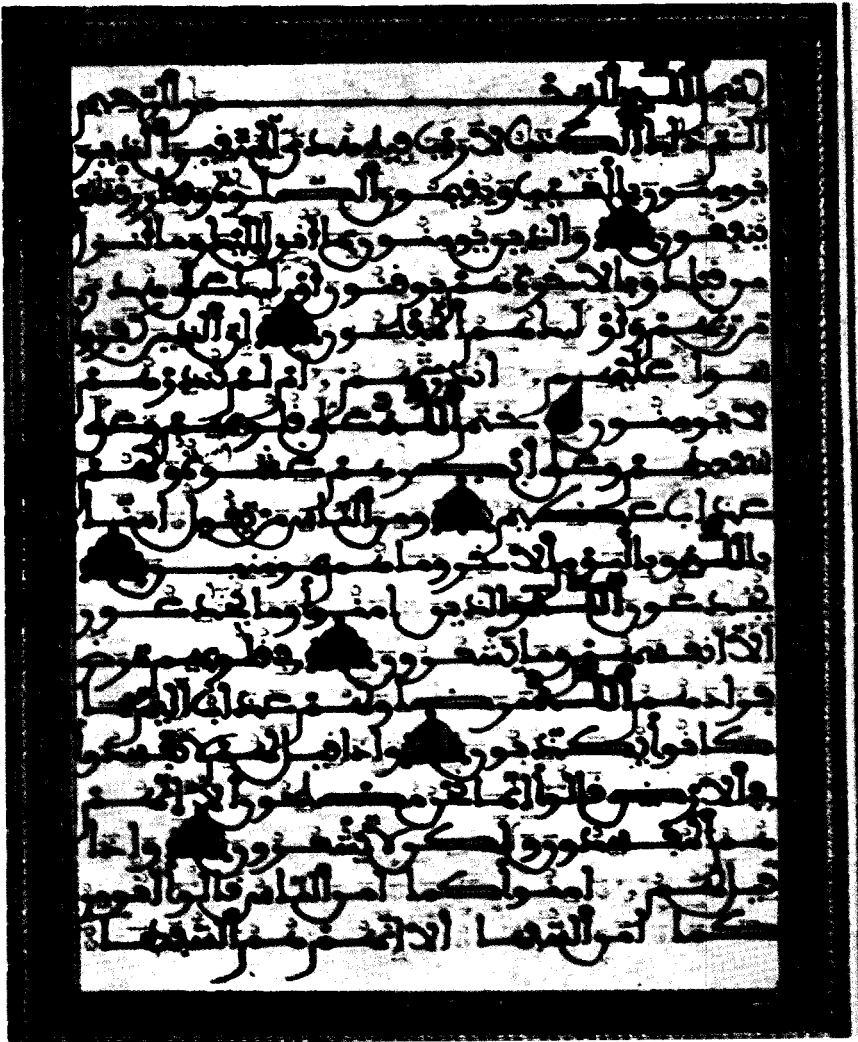 بسم الله الرحمن الرحيم
الم ذلك الكتب لا ريب فيه هدى للمتقين الذين
يومنون بالغيب ويقيمون الصلوة ومما رزقنهم
ينفقون والذين يومنون بما انزل اليك وما انزل
من قبلك وبالاخرة هم يوقنون اوليك على هدى
من ربهم واوليك هم المفلحون ان الذين كفروا
سوا عليهم انذرتهم ام لم تنذرهم
لا يومنون ختم الله على قلوبهم وعلى
سمعهم وعلى ابصرهم غشوة ولهم
عذاب عظيم ومن الناس من يقول امنا
بالله وباليوم الاخر وما هم بمومنين
يخدعون الله والذين امنوا وما يخدعون
الا انفسهم وما يشعرون في قلوبهم مرض
فزادهم الله مرضا ولهم عذاب اليم بما
كانوا يكذبون واذا قيل لهم لا تفسدوا
في الارض قالوا انما نحن مصلحون الا انهم
هم المفسدون ولكن لا يشعرون واذا
قيل لهم امنوا كما امن الناس قالوا انومن
كما امن السفها الا انهم هم السفها